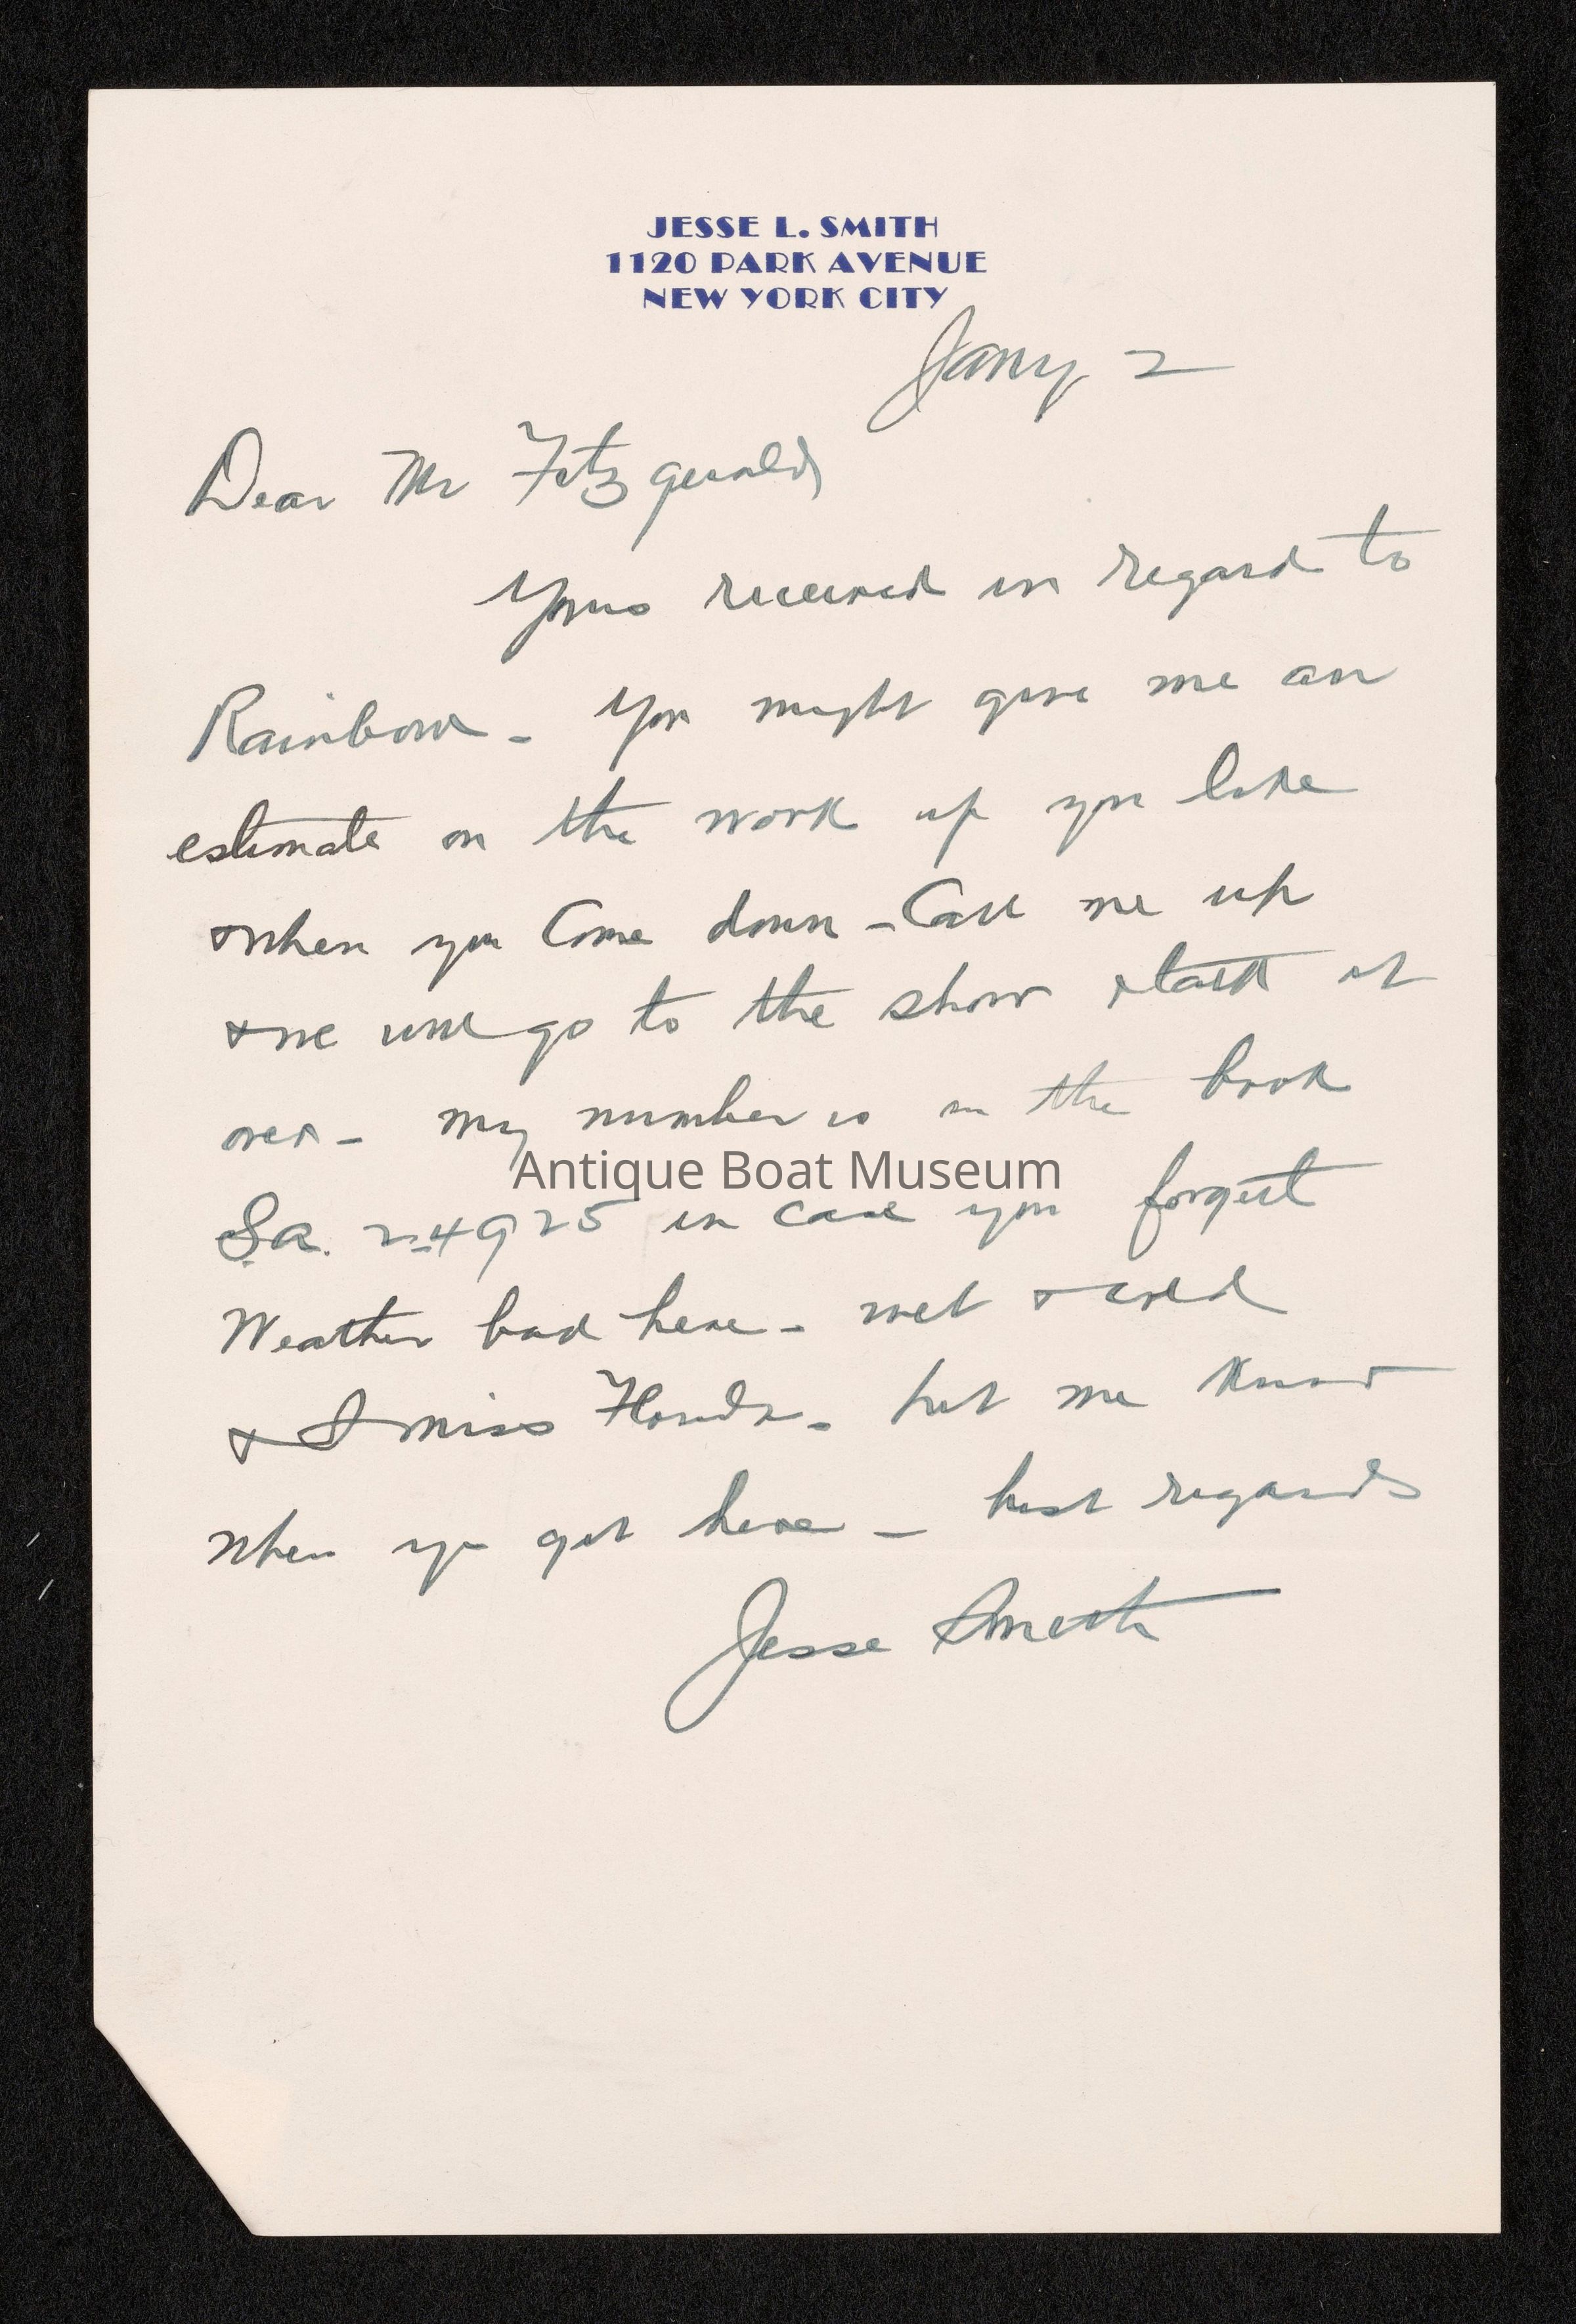 JESSE L. SMITH
1120 PARK AVENUE
NEW YORK CITY
Jany 2
Dear Mr Fitzgerald
Yours received in regard to
Rainbow - You might give me an
estimate on the work if you like
& when you come down - Call me up
& we will go to the show & talk it
over - my number is in the book
Sa. 2-4925 in case you forget
Weather bad here - wet & cold
& I miss Florida - Let me know
when you get here - best regards
Jesse Smith
Antique Boat Museum